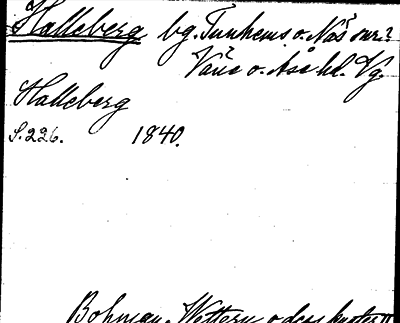 Halleberg bg. Tunhems o. Näs snr.?
Väne o. Åse hd. Vg.
Halleberg
S. 226. 1840.
Bohman, Wettern o dess kuster